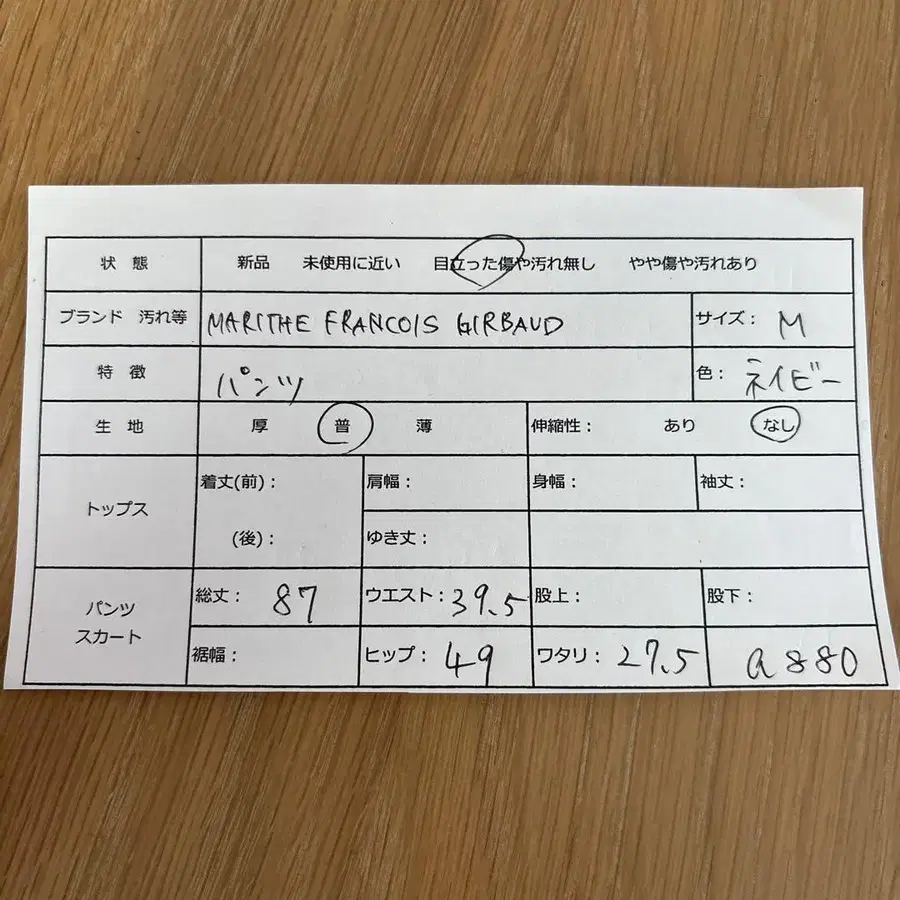 状 態 新品 未使用に近い 目立った傷や汚れ無し やや傷や汚れあり
ブランド 汚れ等 MARITHE FRANCOIS GIRBAUD サイズ: M
特 徴 パンツ 色: ネイビー
生 地 厚 普 薄 伸縮性: あり なし
トップス 着丈(前): 肩幅: 身幅: 袖丈:
(後): ゆき丈:
パンツ スカート 総丈: 87 ウエスト: 39.5 股上: 股下:
裾幅: ヒップ: 49 ワタリ: 27.5 a880